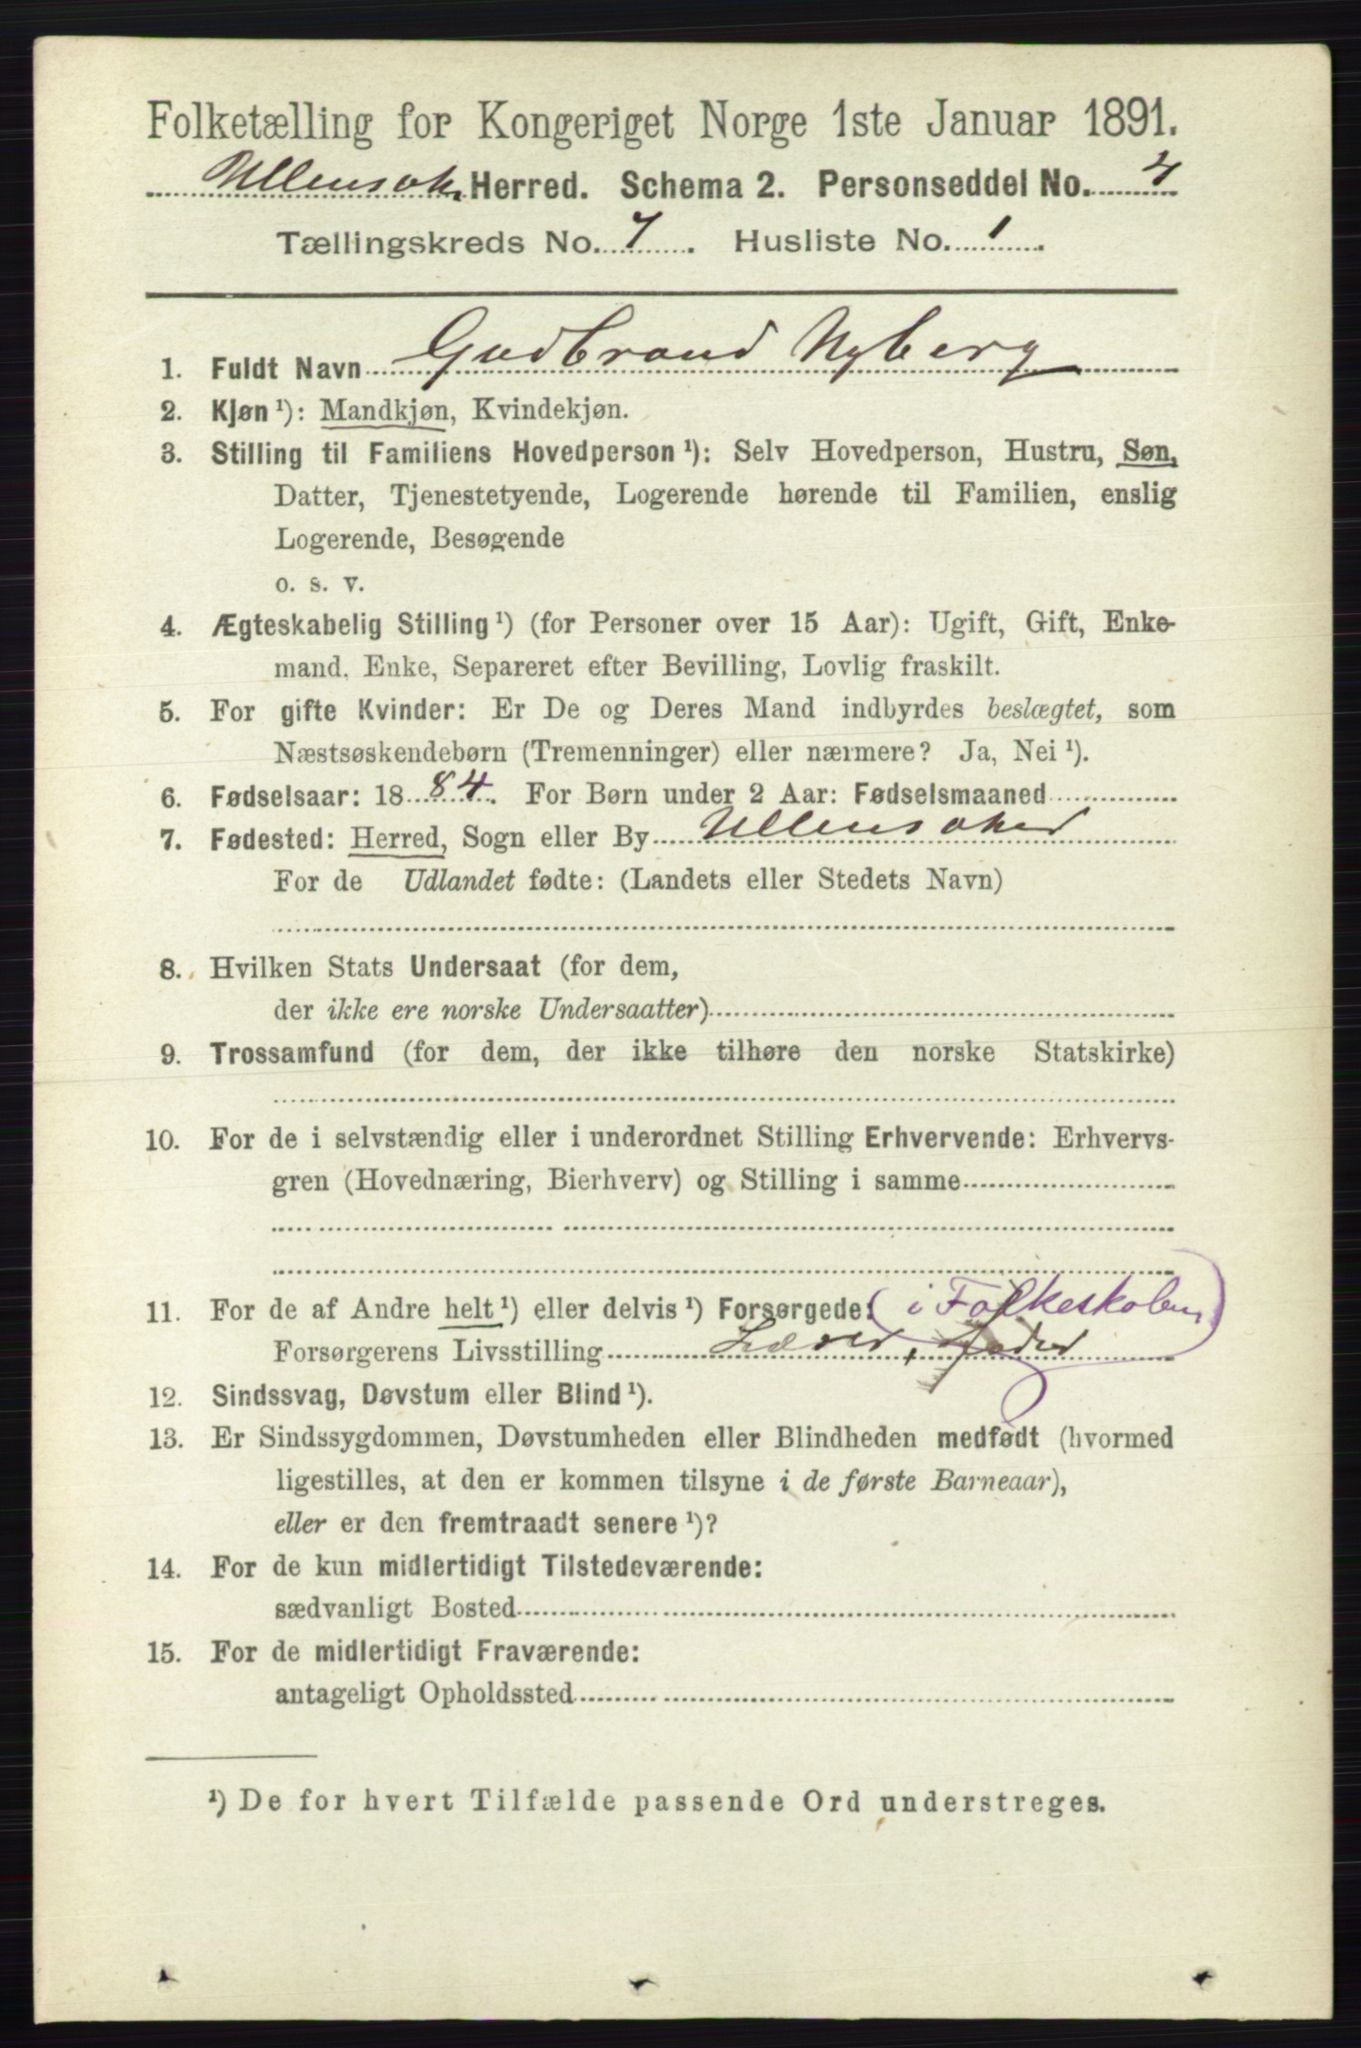 Folketælling for Kongeriget Norge 1ste Januar 1891.
Ullensaker Herred. Schema 2. Personseddel No. 4
Tællingskreds No. 7. Husliste No. 1.
1. Fuldt Navn Gudbrand Nyberg
2. Kjøn ¹): Mandkjøn, Kvindekjøn.
3. Stilling til Familiens Hovedperson ¹): Selv Hovedperson, Hustru, Søn,
Datter, Tjenestetyende, Logerende hørende til Familien, enslig
Logerende, Besøgende
o. s. v.
4. Ægteskabelig Stilling ¹) (for Personer over 15 Aar): Ugift, Gift, Enke-
mand, Enke, Separeret efter Bevilling, Lovlig fraskilt.
5. For gifte Kvinder: Er De og Deres Mand indbyrdes beslægtet, som
Næstsøskendebørn (Tremenninger) eller nærmere? Ja, Nei ¹).
6. Fødselsaar: 1884. For Børn under 2 Aar: Fødselsmaaned
7. Fødested: Herred, Sogn eller By Ullensaker
For de Udlandet fødte: (Landets eller Stedets Navn)
8. Hvilken Stats Undersaat (for dem,
der ikke ere norske Undersaatter)
9. Trossamfund (for dem, der ikke tilhøre den norske Statskirke)
10. For de i selvstændig eller i underordnet Stilling Erhvervende: Erhvervs-
gren (Hovednæring, Bierhverv) og Stilling i samme
11. For de af Andre helt ¹) eller delvis ¹) Forsørgede: (i Folkeskolen)
Forsørgerens Livsstilling Lærer, Fader
12. Sindssvag, Døvstum eller Blind ¹).
13. Er Sindssygdommen, Døvstumheden eller Blindheden medfødt (hvormed
ligestilles, at den er kommen tilsyne i de første Barneaar),
eller er den fremtraadt senere ¹)?
14. For de kun midlertidigt Tilstedeværende:
sædvanligt Bosted
15. For de midlertidigt Fraværende:
antageligt Opholdssted
¹) De for hvert Tilfælde passende Ord understreges.